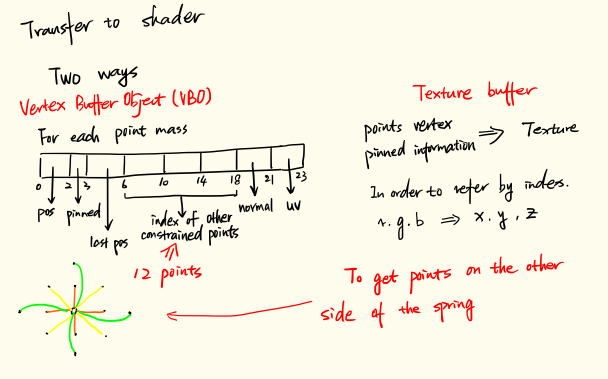 Transfer to shader
Two ways
Vertex Buffer Object (VBO)
For each point mass
0 2 3 6 10 14 18 21 23
pos pinned last pos index of other constrained points normal uv
12 points
Texture buffer
points vertex
pinned information ⇒ Texture
In order to refer by index.
r.g.b ⇒ x.y.z
To get points on the other
side of the spring